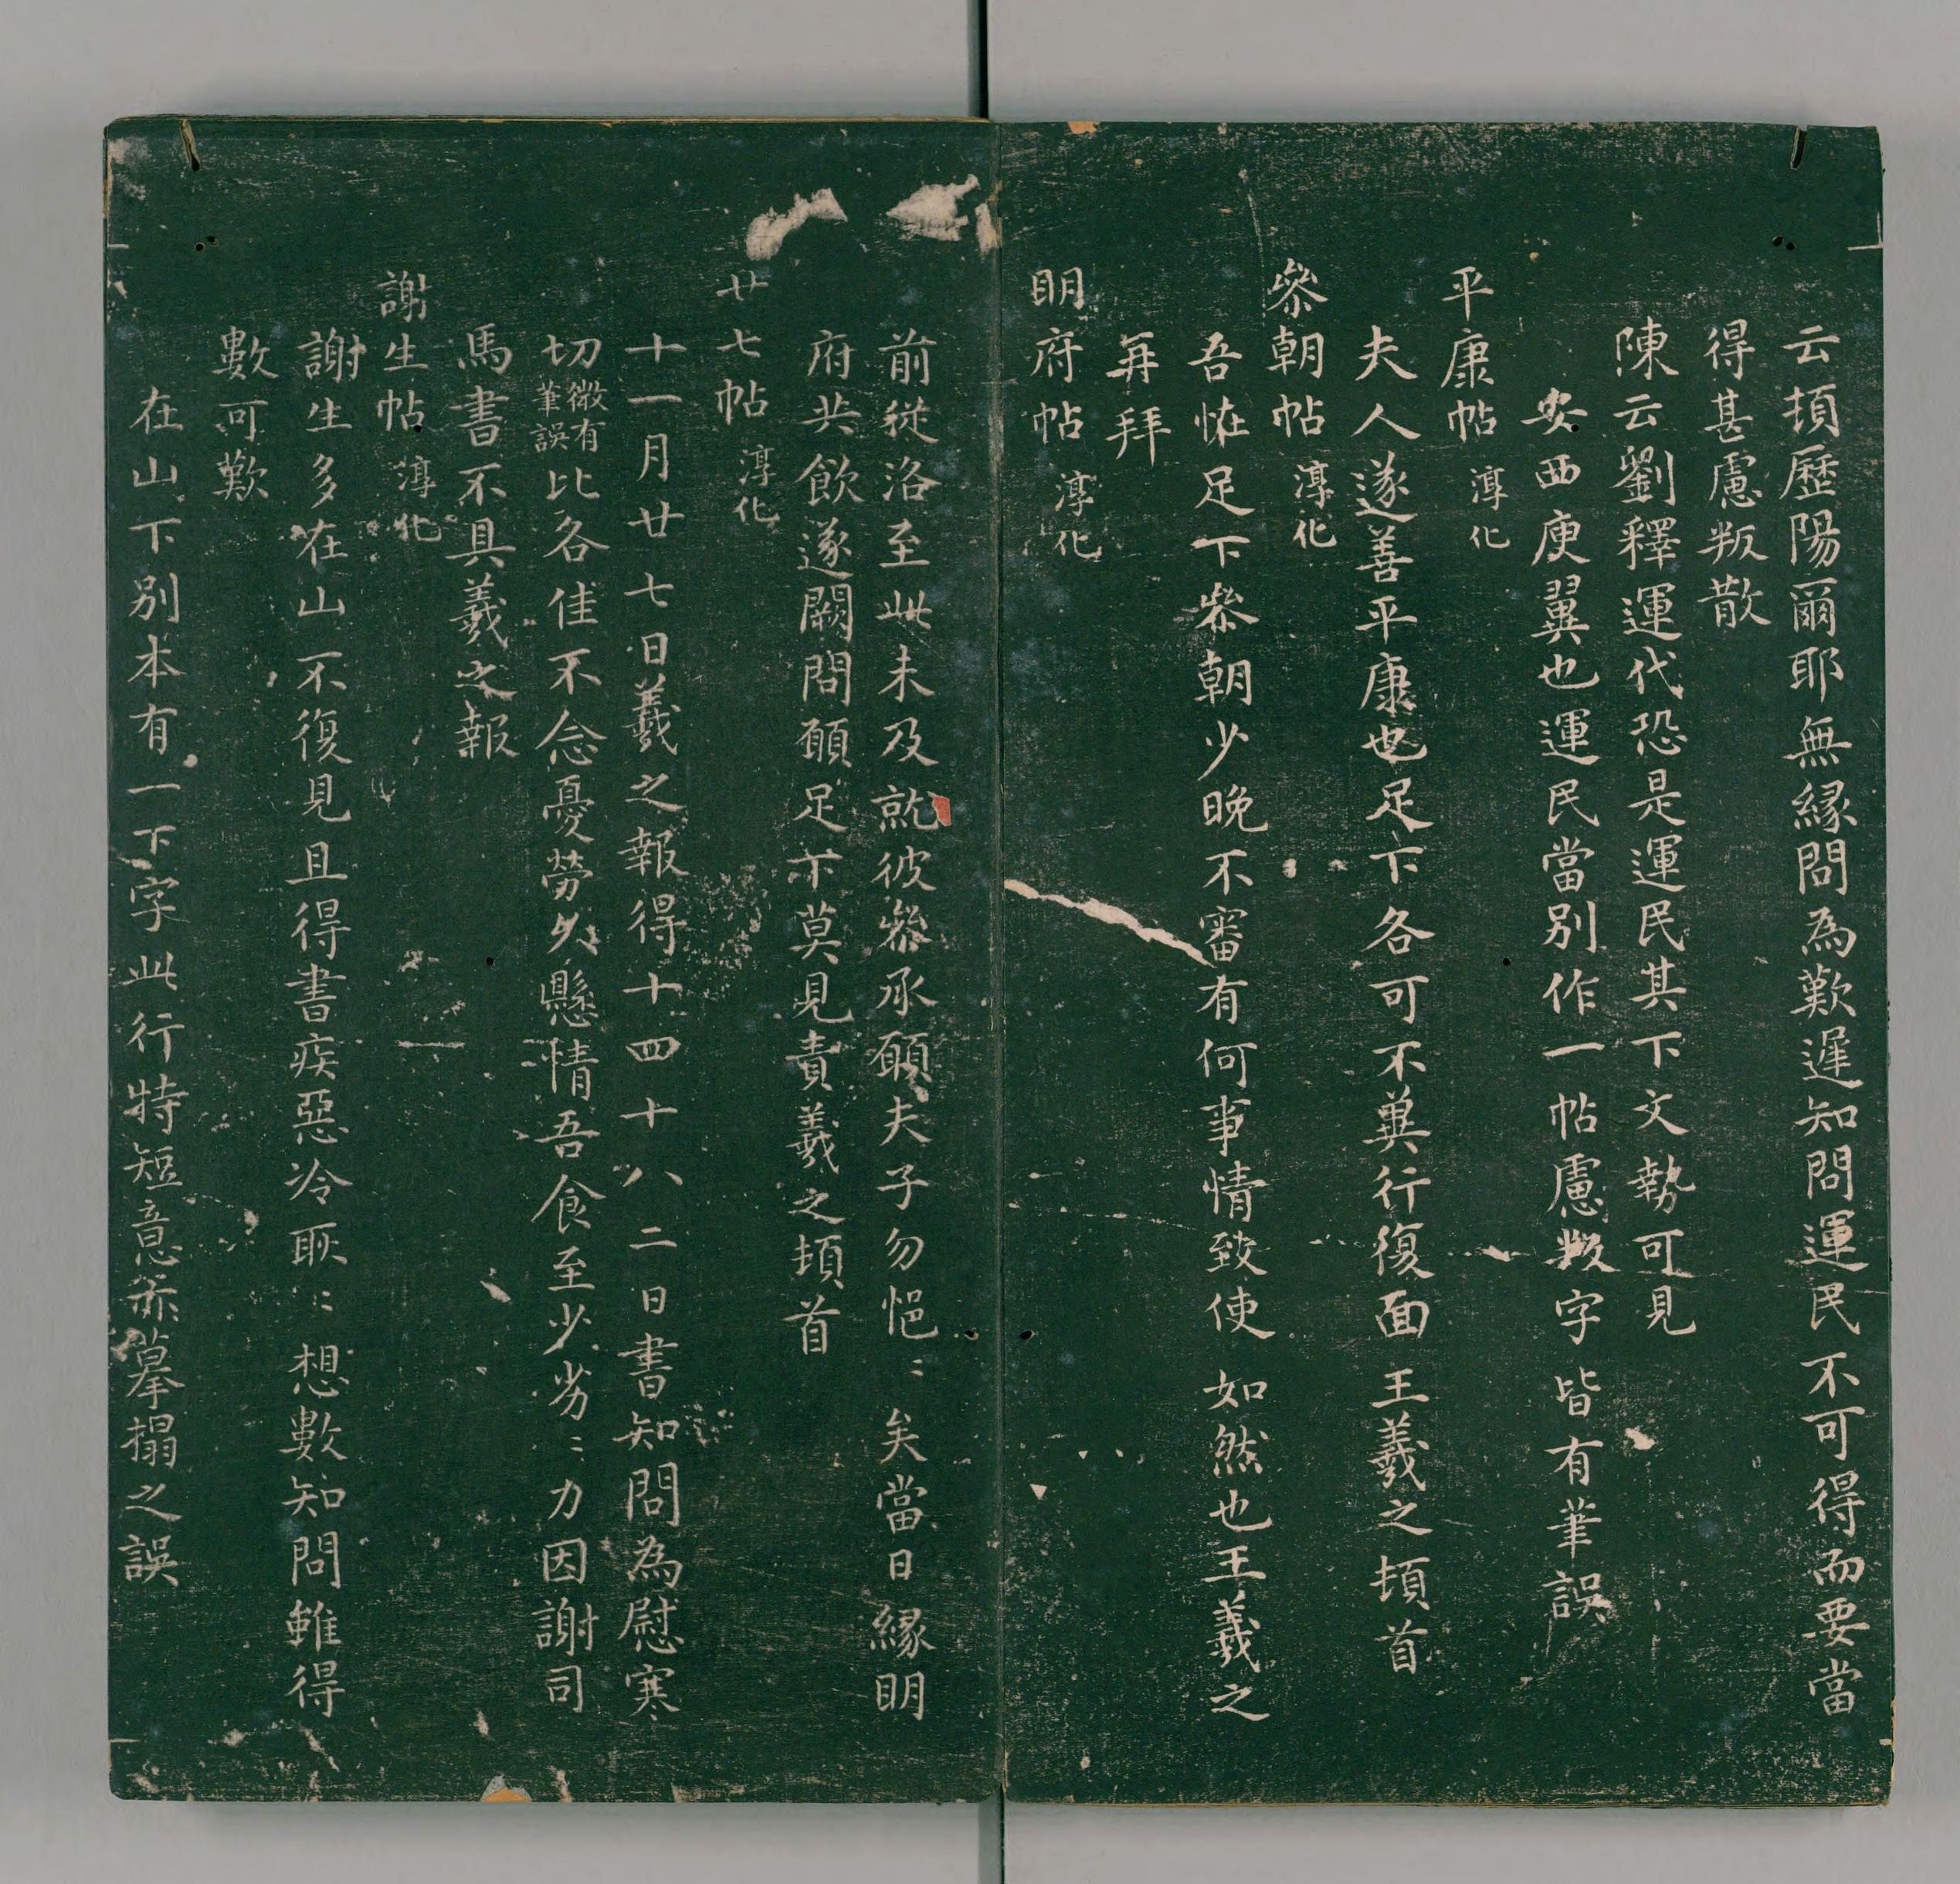 云頓歷陽爾耶無緣問為歎遲知問運民不可得而要當
得甚慮叛散
陳云劉釋運代恐是運民其下文勢可見
安西庾翼也運民當別作一帖慮叛字皆有筆誤
平康帖 淳化
夫人遂善平康也足下各可不冀行復面 王羲之頓首
叅朝帖 淳化
吾恠足下叅朝少晚不審有何事情致使 如然也王羲之
再拜
明府帖 淳化
前從洛至此未及就彼叅承願夫子勿悒〻矣當日緣明
府共飲遂闕問願足下莫見責羲之頓首
廿七帖 淳化
十一月廿七日羲之報得十四十八二日書知問為慰寒
切微有筆誤比各佳不念憂勞久懸情吾食至少劣〻力因謝司
馬書不具羲之報
謝生帖 淳化
謝生多在山不復見且得書疾惡冷耿〻想數知問雖得
數可歎
在山下別本有一下字此行特短意亦摹搨之誤